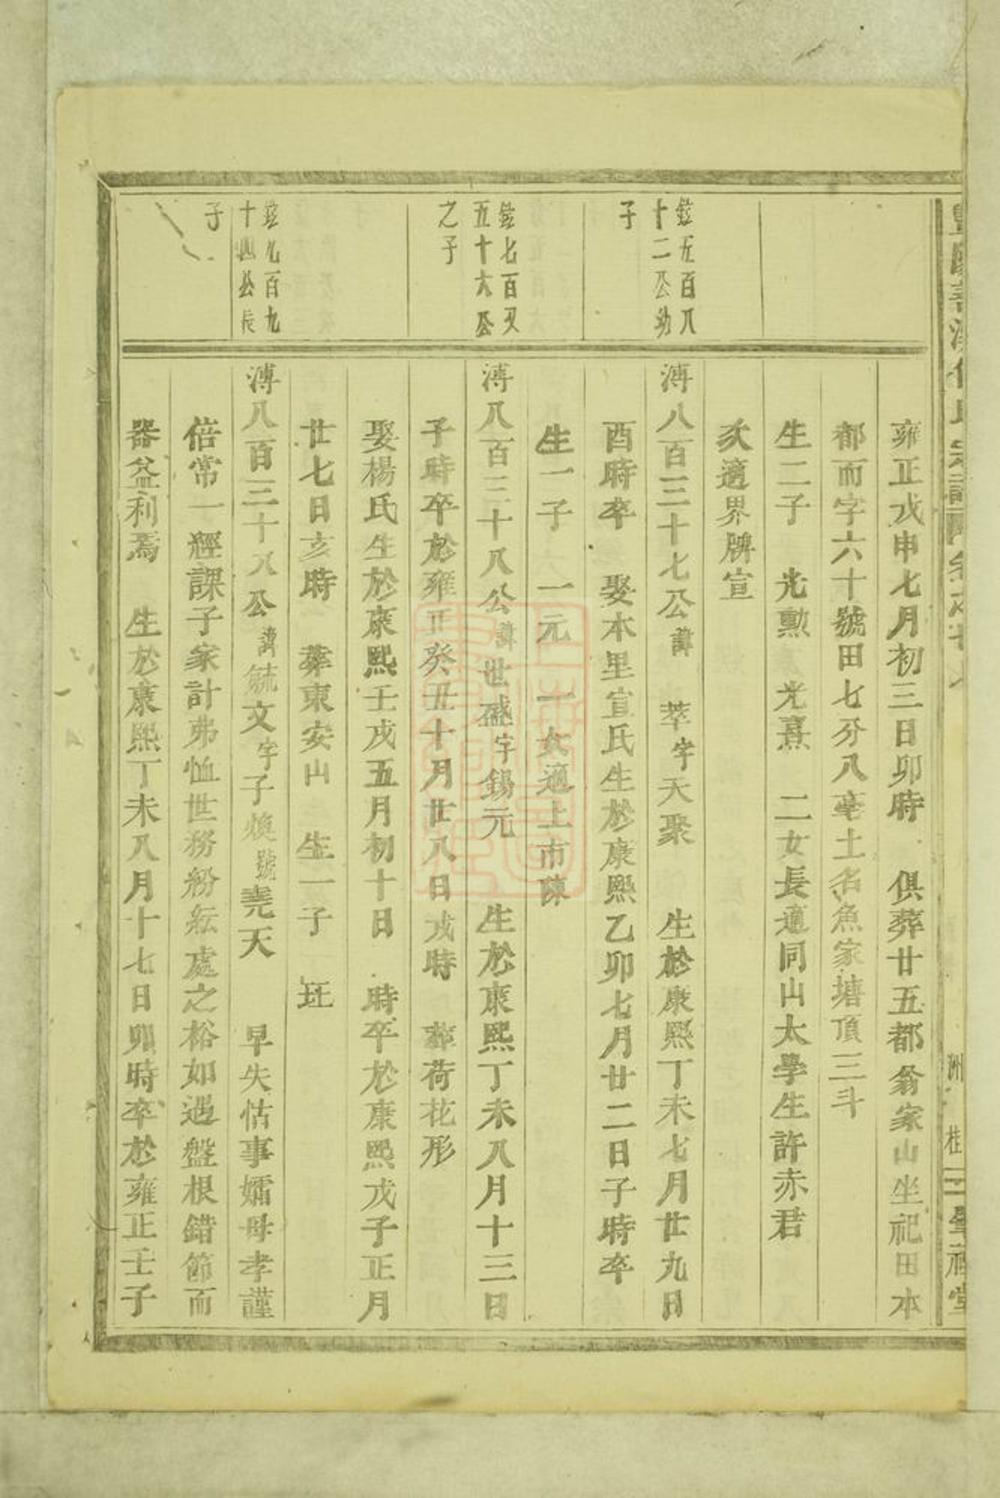 雍正戊申七月初三日卯時 俱葬廿五都翁家山坐祀田本
都而字六十號田七分八毫土名魚家塘頂三斗
生二子 光勲 光熹 二女長適同山太學生許赤君
次適界牌宣
鉉五百八
十二公幼
子
溥八百三十七公諱 萃字天聚 生於康熙丁未七月廿九日
酉時卒 娶本里宣氏生於康熙乙卯七月廿二日子時卒
生一子 一元 一女適上市陳
鉉七百又
五十六公
之子
溥八百三十八公諱世盛字錫元 生於康熙丁未八月十三日
子時卒於雍正癸丑十月廿八日戌時 葬荷花形
娶楊氏生於康熙壬戌五月初十日 時卒於康熙戊子正月
廿七日亥時 葬東安山 生一子 玨
鉉九百九
十四公長
子
溥八百三十八公諱毓文字子煥號堯天 早失怙事孀母孝謹
倍常一經課子家計弗恤世務紛紜處之裕如遇盤根錯節而
器益利焉 生於康熙丁未八月十七日卯時卒於雍正壬子